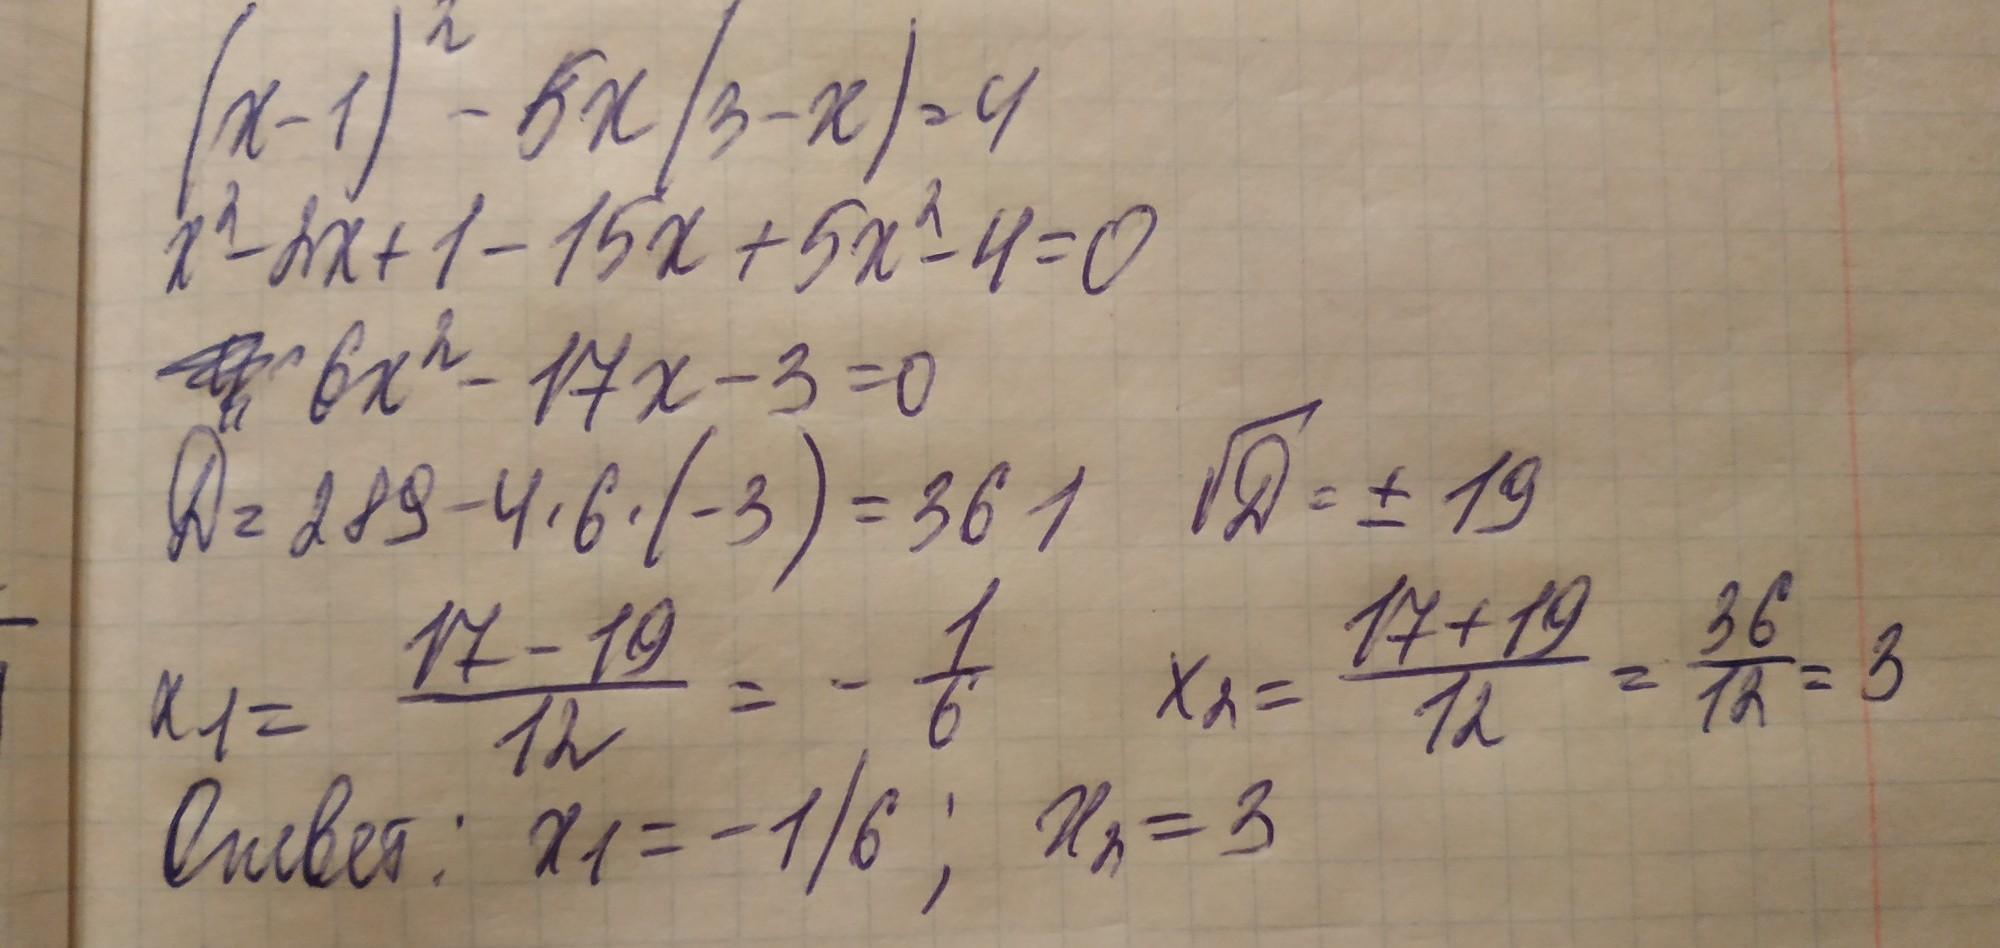 (x-1)² - 5x(3-x)=4
x²-2x+1-15x+5x²-4=0
6x²-17x-3=0
D=289-4·6·(-3)=361 √D=±19
x₁= (17-19)/12 = -1/6 x₂= (17+19)/12 = 36/12 = 3
Ответ: x₁=-1/6; x₂=3